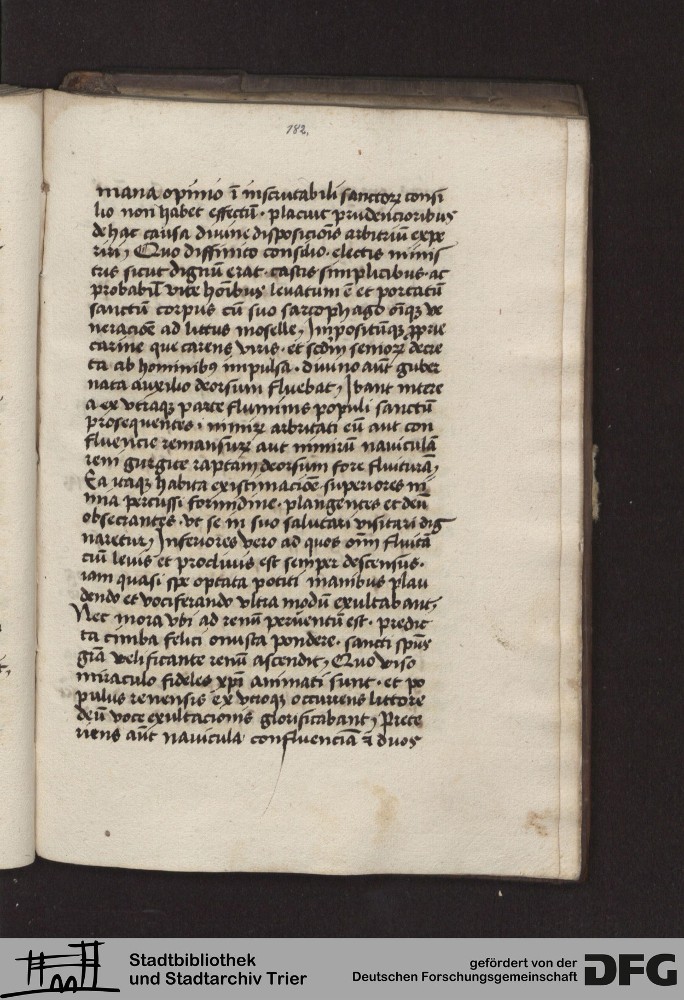 182.
mana opinio ī inscrutabili sanctoꝝ consi
lio non habet effectū · placuit prudencioribus
de hac causa divine disposicōis arbitriū expe
riri, Quo diffinito consilio · electis minis
tris sicut dignū erat · castis simplicibus · ac
probabil' vite hōibus levatum ē et portatū
sanctū corpus cū suo sarcophago oīqꝫ ve
neracōe ad littus moselle, Impositūqꝫ ꝓprie
carine que carens viris · et scd'm senioꝝ decre
ta ab hominibꝰ impulsa · divino aūt guber
nata auxilio deorsum fluebat, Ibant intere
a ex vtraqꝫ parte fluminis populi sanctū
prosequentes · arbitrati eū aut con
fluencie remansurū aut nimirū naviculā
rem gurgite raptam deorsum fore fluituram,
Ea itaqꝫ habita existimacōe · superiores ni
mia percussi formidine · plangentes et deū
obsecrantes · vt se in suo salutari visitari dig
naretur, Inferiores vero ad quos om̄ fluitā
ciū levis et proclivus est semper descensus ·
iam quasi spe optata potiti manibus plau
dendo et vociferando vltra modū exultabant,
Nec mora vbi ad renū perventū est · predic
ta cimba felici onusta pondere · sancti spūs
grā velificante renū ascendit, Quo viso
miraculo fideles xp̄i animati sunt · et po
pulus renensis ex vtroqꝫ occurens littore
deū voce exultacionis glorificabant, Prete
riens aūt navicula confluenciā ⁊ duos
Stadtbibliothek
und Stadtarchiv Trier
gefördert von der
Deutschen Forschungsgemeinschaft
DFG